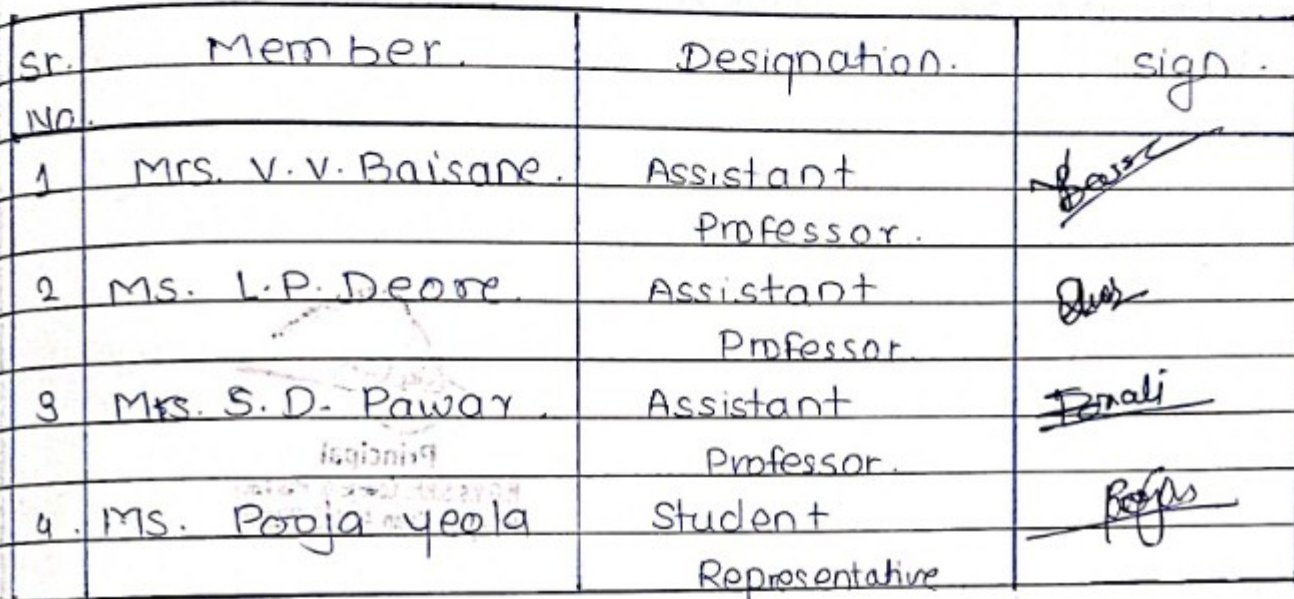 Sr. Member. Designation. sign.
No.
1 Mrs. V. V. Baisane. Assistant
Professor.
2 Ms. L. P. Deore. Assistant
Professor.
3 Mrs. S. D. Pawar. Assistant
Professor.
4. Ms. Pooja yeola Student
Representative
Principal